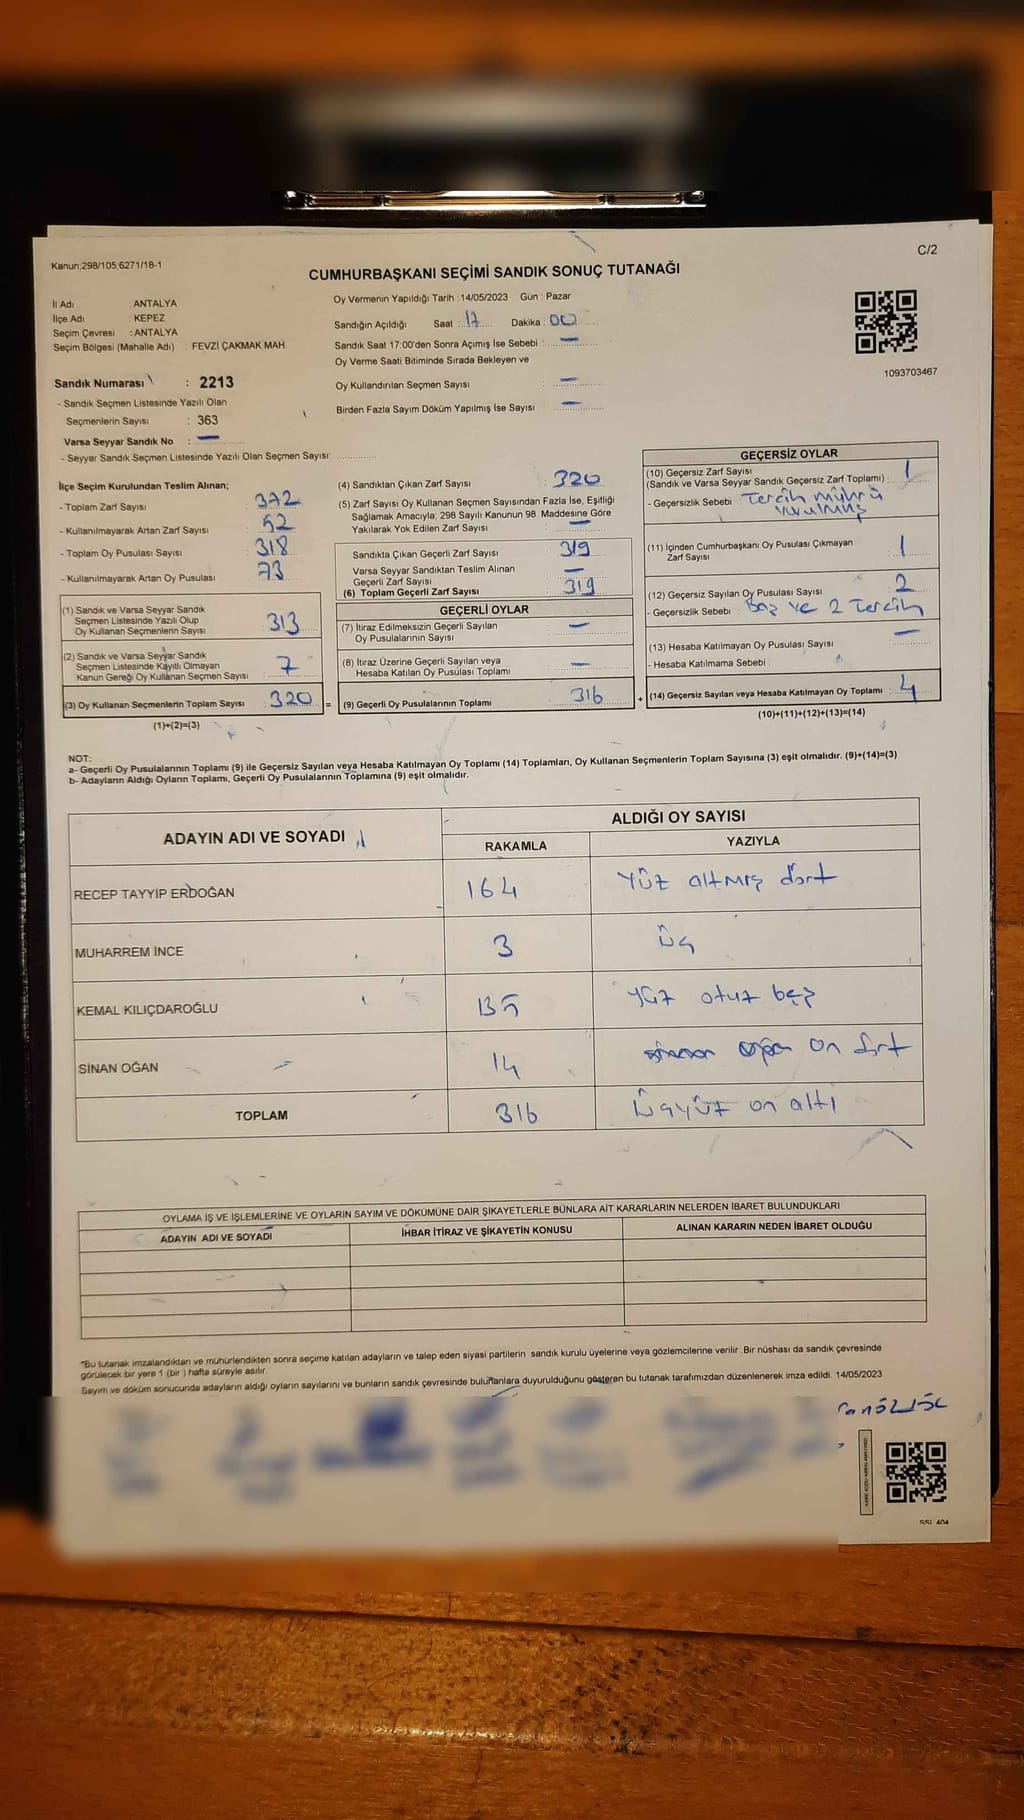 C/2
Kanun;298/105;6271/18-1
CUMHURBAŞKANI SEÇİMİ SANDIK SONUÇ TUTANAĞI
İl Adı : ANTALYA
İlçe Adı : KEPEZ
Seçim Çevresi : ANTALYA
Seçim Bölgesi (Mahalle Adı) : FEVZİ ÇAKMAK MAH.
Sandık Numarası : 2213
- Sandık Seçmen Listesinde Yazılı Olan
Seçmenlerin Sayısı : 363
Varsa Seyyar Sandık No : —
- Seyyar Sandık Seçmen Listesinde Yazılı Olan Seçmen Sayısı :
Oy Vermenin Yapıldığı Tarih : 14/05/2023 Gün : Pazar
Sandığın Açıldığı Saat : 17 Dakika : 00
Sandık Saat 17:00'den Sonra Açımış İse Sebebi : —
Oy Verme Saati Bitiminde Sırada Bekleyen ve
Oy Kullandırılan Seçmen Sayısı : —
Birden Fazla Sayım Döküm Yapılmış İse Sayısı : —
1093703467
İlçe Seçim Kurulundan Teslim Alınan;
- Toplam Zarf Sayısı : 372
- Kullanılmayarak Artan Zarf Sayısı : 52
- Toplam Oy Pusulası Sayısı : 318
- Kullanılmayarak Artan Oy Pusulası : 73
(1) Sandık ve Varsa Seyyar Sandık
Seçmen Listesinde Yazılı Olup
Oy Kullanan Seçmenlerin Sayısı : 313
(2) Sandık ve Varsa Seyyar Sandık
Seçmen Listesinde Kayıtlı Olmayan
Kanun Gereği Oy Kullanan Seçmen Sayısı : 7
(3) Oy Kullanan Seçmenlerin Toplam Sayısı : 320
(1)+(2)=(3)
(4) Sandıktan Çıkan Zarf Sayısı : 320
(5) Zarf Sayısı Oy Kullanan Seçmen Sayısından Fazla İse, Eşitliği
Sağlamak Amacıyla, 298 Sayılı Kanunun 98. Maddesine Göre
Yakılarak Yok Edilen Zarf Sayısı : —
Sandıkta Çıkan Geçerli Zarf Sayısı : 319
Varsa Seyyar Sandıktan Teslim Alınan
Geçerli Zarf Sayısı : —
(6) Toplam Geçerli Zarf Sayısı : 319
GEÇERLİ OYLAR
(7) İtiraz Edilmeksizin Geçerli Sayılan
Oy Pusulalarının Sayısı : —
(8) İtiraz Üzerine Geçerli Sayılan veya
Hesaba Katılan Oy Pusulası Toplamı : —
= (9) Geçerli Oy Pusulalarının Toplamı : 316
GEÇERSİZ OYLAR
(10) Geçersiz Zarf Sayısı
(Sandık ve Varsa Seyyar Sandık Geçersiz Zarf Toplamı) : 1
- Geçersizlik Sebebi : Tercih mührü
vurulmuş
(11) İçinden Cumhurbaşkanı Oy Pusulası Çıkmayan
Zarf Sayısı : 1
(12) Geçersiz Sayılan Oy Pusulası Sayısı : 2
- Geçersizlik Sebebi : Boş ve 2 Tercih
(13) Hesaba Katılmayan Oy Pusulası Sayısı : —
- Hesaba Katılmama Sebebi :
+ (14) Geçersiz Sayılan veya Hesaba Katılmayan Oy Toplamı : 4
(10)+(11)+(12)+(13)=(14)
NOT:
a- Geçerli Oy Pusulalarının Toplamı (9) ile Geçersiz Sayılan veya Hesaba Katılmayan Oy Toplamı (14) Toplamları, Oy Kullanan Seçmenlerin Toplam Sayısına (3) eşit olmalıdır. (9)+(14)=(3)
b- Adayların Aldığı Oyların Toplamı, Geçerli Oy Pusulalarının Toplamına (9) eşit olmalıdır.
ADAYIN ADI VE SOYADI ALDIĞI OY SAYISI
RAKAMLA YAZIYLA
RECEP TAYYİP ERDOĞAN 164 Yüz altmış dört
MUHARREM İNCE 3 üç
KEMAL KILIÇDAROĞLU 135 yüz otuz beş
SİNAN OĞAN 14 on dört
TOPLAM 316 üçyüz on altı
OYLAMA İŞ VE İŞLEMLERİNE VE OYLARIN SAYIM VE DÖKÜMÜNE DAİR ŞİKAYETLERLE BUNLARA AİT KARARLARIN NELERDEN İBARET BULUNDUKLARI
ADAYIN ADI VE SOYADI İHBAR İTİRAZ VE ŞİKAYETİN KONUSU ALINAN KARARIN NEDEN İBARET OLDUĞU
*Bu tutanak imzalandıktan ve mühürlendikten sonra seçime katılan adayların ve talep eden siyasi partilerin sandık kurulu üyelerine veya gözlemcilerine verilir. Bir nüshası da sandık çevresinde
görülecek bir yere 1 (bir) hafta süreyle asılır.
Sayım ve döküm sonucunda adayların aldığı oyların sayılarını ve bunların sandık çevresinde bulunanlara duyurulduğunu gösteren bu tutanak tarafımızdan düzenlenerek imza edildi. 14/05/2023